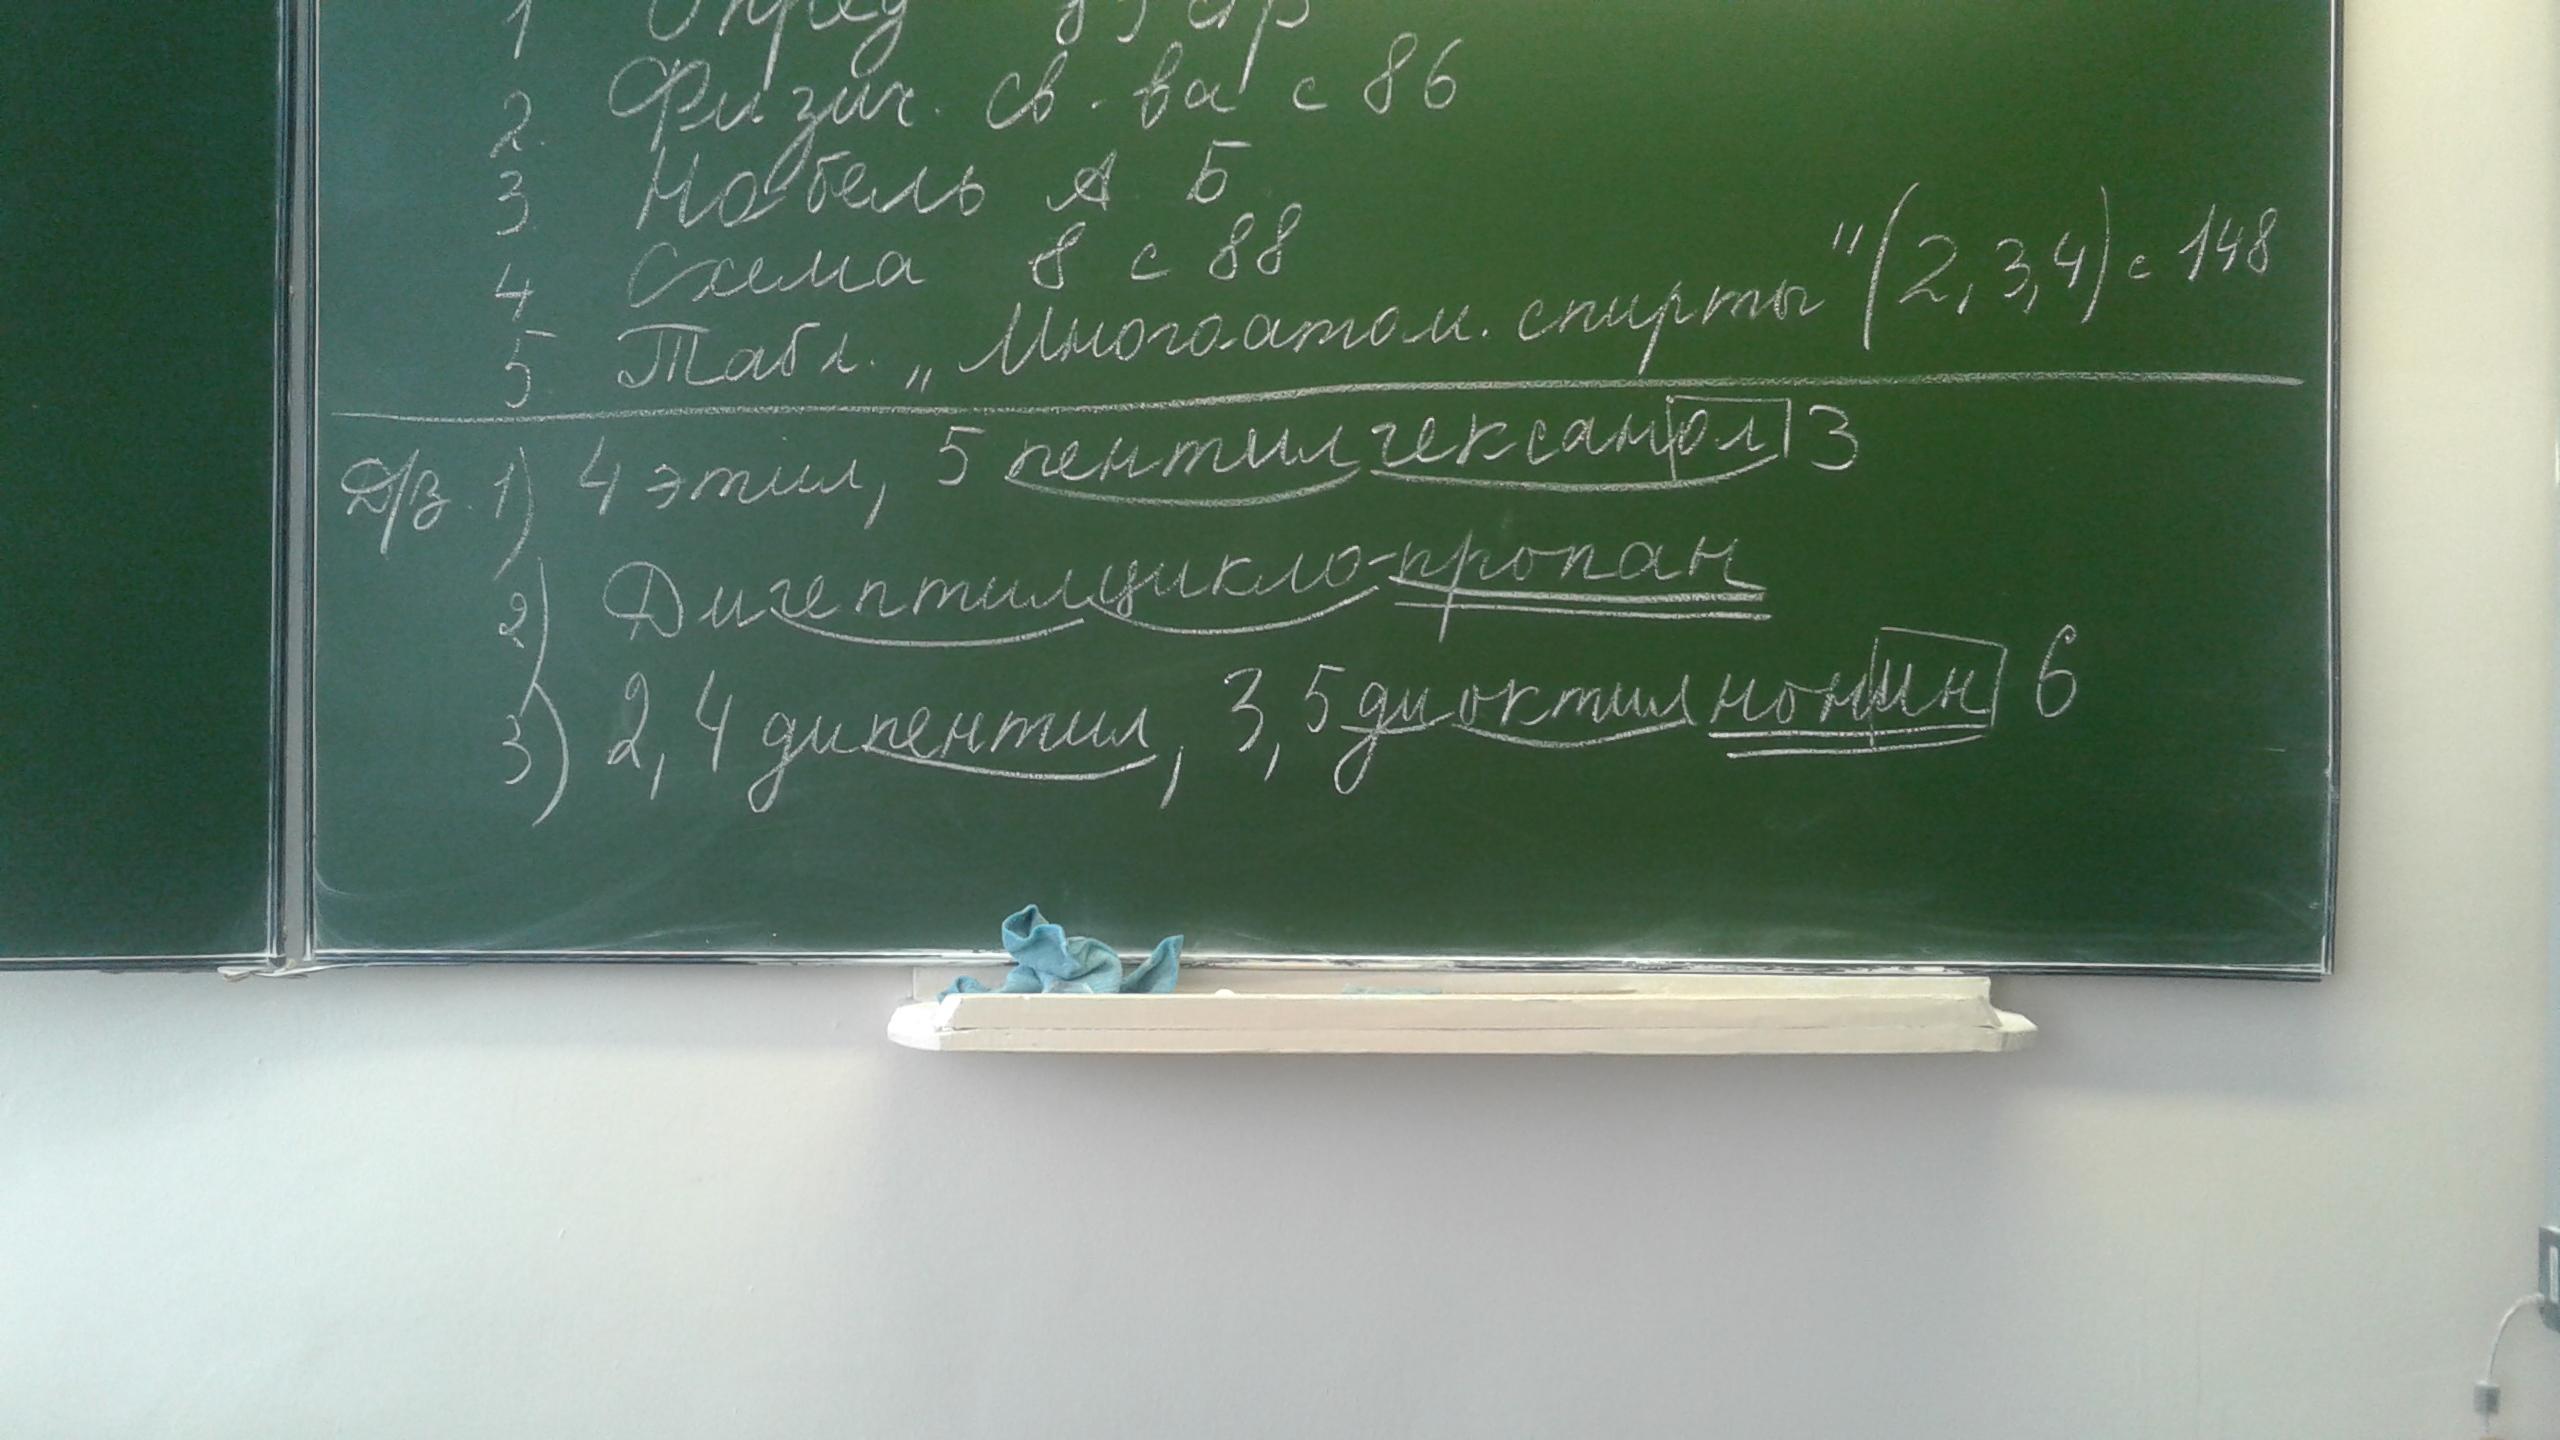 1 Опред 85 стр
2. Физич. св-ва с 86
3 Нобель А Б
4 Схема 8 с 88
5 Табл. „Многоатом. спирты" (2,3,4) с 148
Д/з. 1) 4 этил, 5 пентилгексанол 3
2) Дигептилцикло-пропан
3) 2,4 дипентил, 3,5 диоктилнонин 6